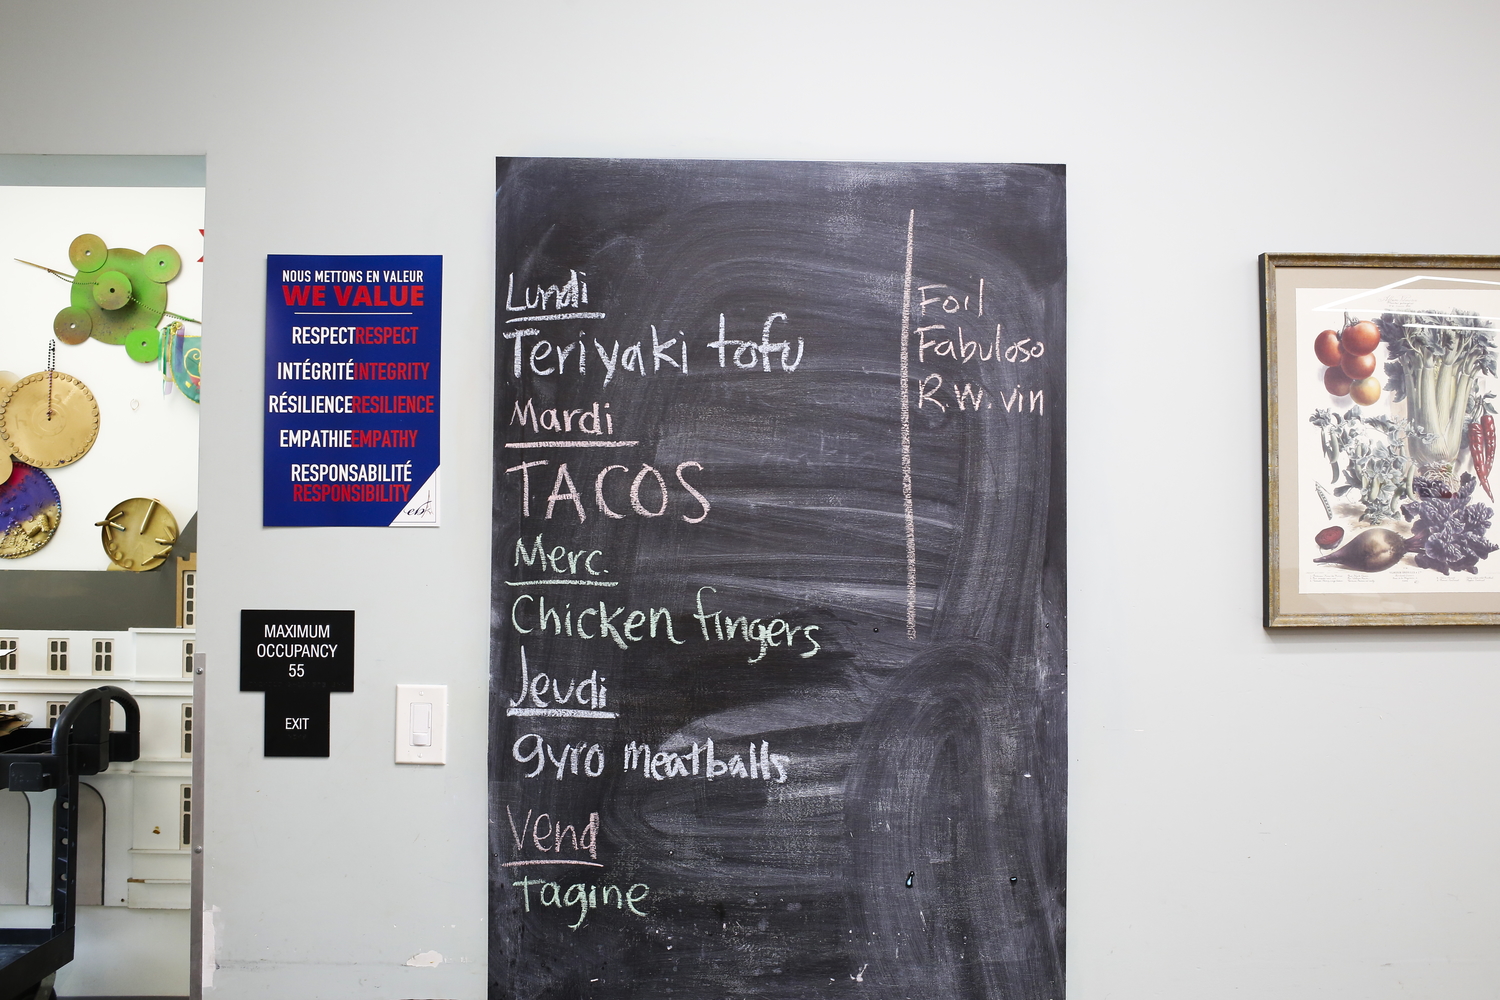 NOUS METTONS EN VALEUR
WE VALUE
RESPECTRESPECT
INTÉGRITÉINTEGRITY
RÉSILIENCERESILIENCE
EMPATHIEEMPATHY
RESPONSABILITÉ
RESPONSIBILITY
MAXIMUM
OCCUPANCY
55
EXIT
Lundi
Teriyaki tofu
Mardi
TACOS
Merc.
Chicken fingers
Jeudi
gyro meatballs
Vend
Tagine
Foil
Fabuloso
R.W. vin